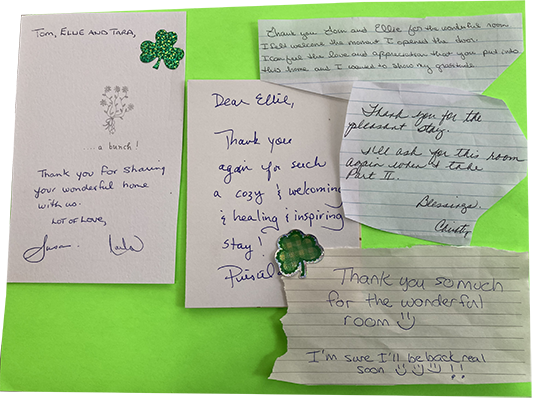 TOM, ELLIE AND TARA,
....a bunch!
Thank you for sharing
your wonderful home
with us.
LOT OF LOVE,
Susan.
Dear Ellie,
Thank you
again for such
a cozy & welcoming
& healing & inspiring
stay!
Thank you Tom and Ellie for the wonderful room
I felt welcome the moment I opened the door.
I can feel the love and appreciation that you put into
this home and I wanted to show my gratitude
Thank you for the
pleasant stay.
I'll ask for this room
again when I take
Part II.
Blessings,
Christy
Thank you so much
for the wonderful
room
I'm sure I'll be back real
soon !!